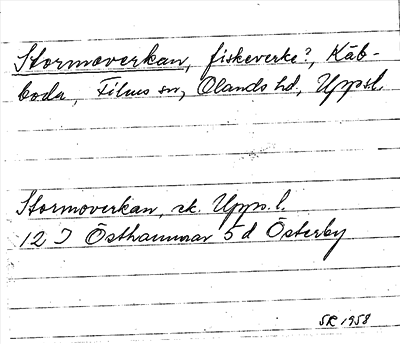 Stormoverkan, fiskeverke?, Kåb-
boda, Films sn, Olands hd, Upps.l.
Stormoverkan, ek. Upps. l.
12 I Östhammar 5 d Österby
SR 1958